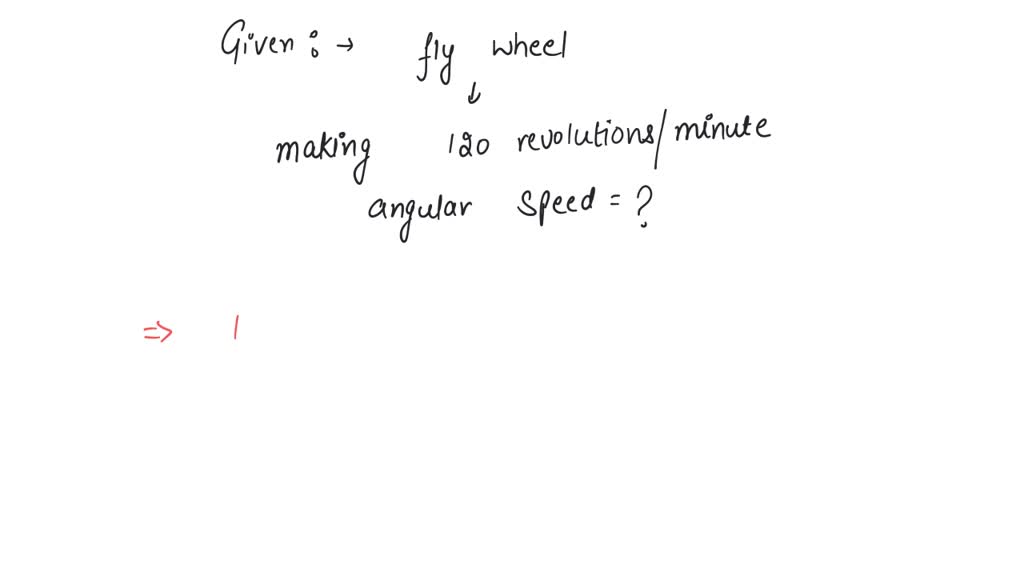 Given : → fly wheel
↓
making 120 revolutions/minute
angular speed = ?
⇒ 1